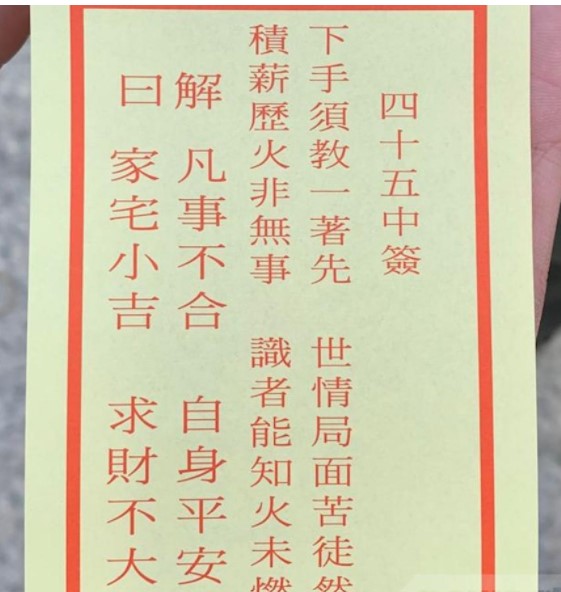 四十五中簽
下手須教一著先 世情局面苦徒然
積薪歷火非無事 識者能知火未燃
解 凡事不合 自身平安
曰 家宅小吉 求財不大